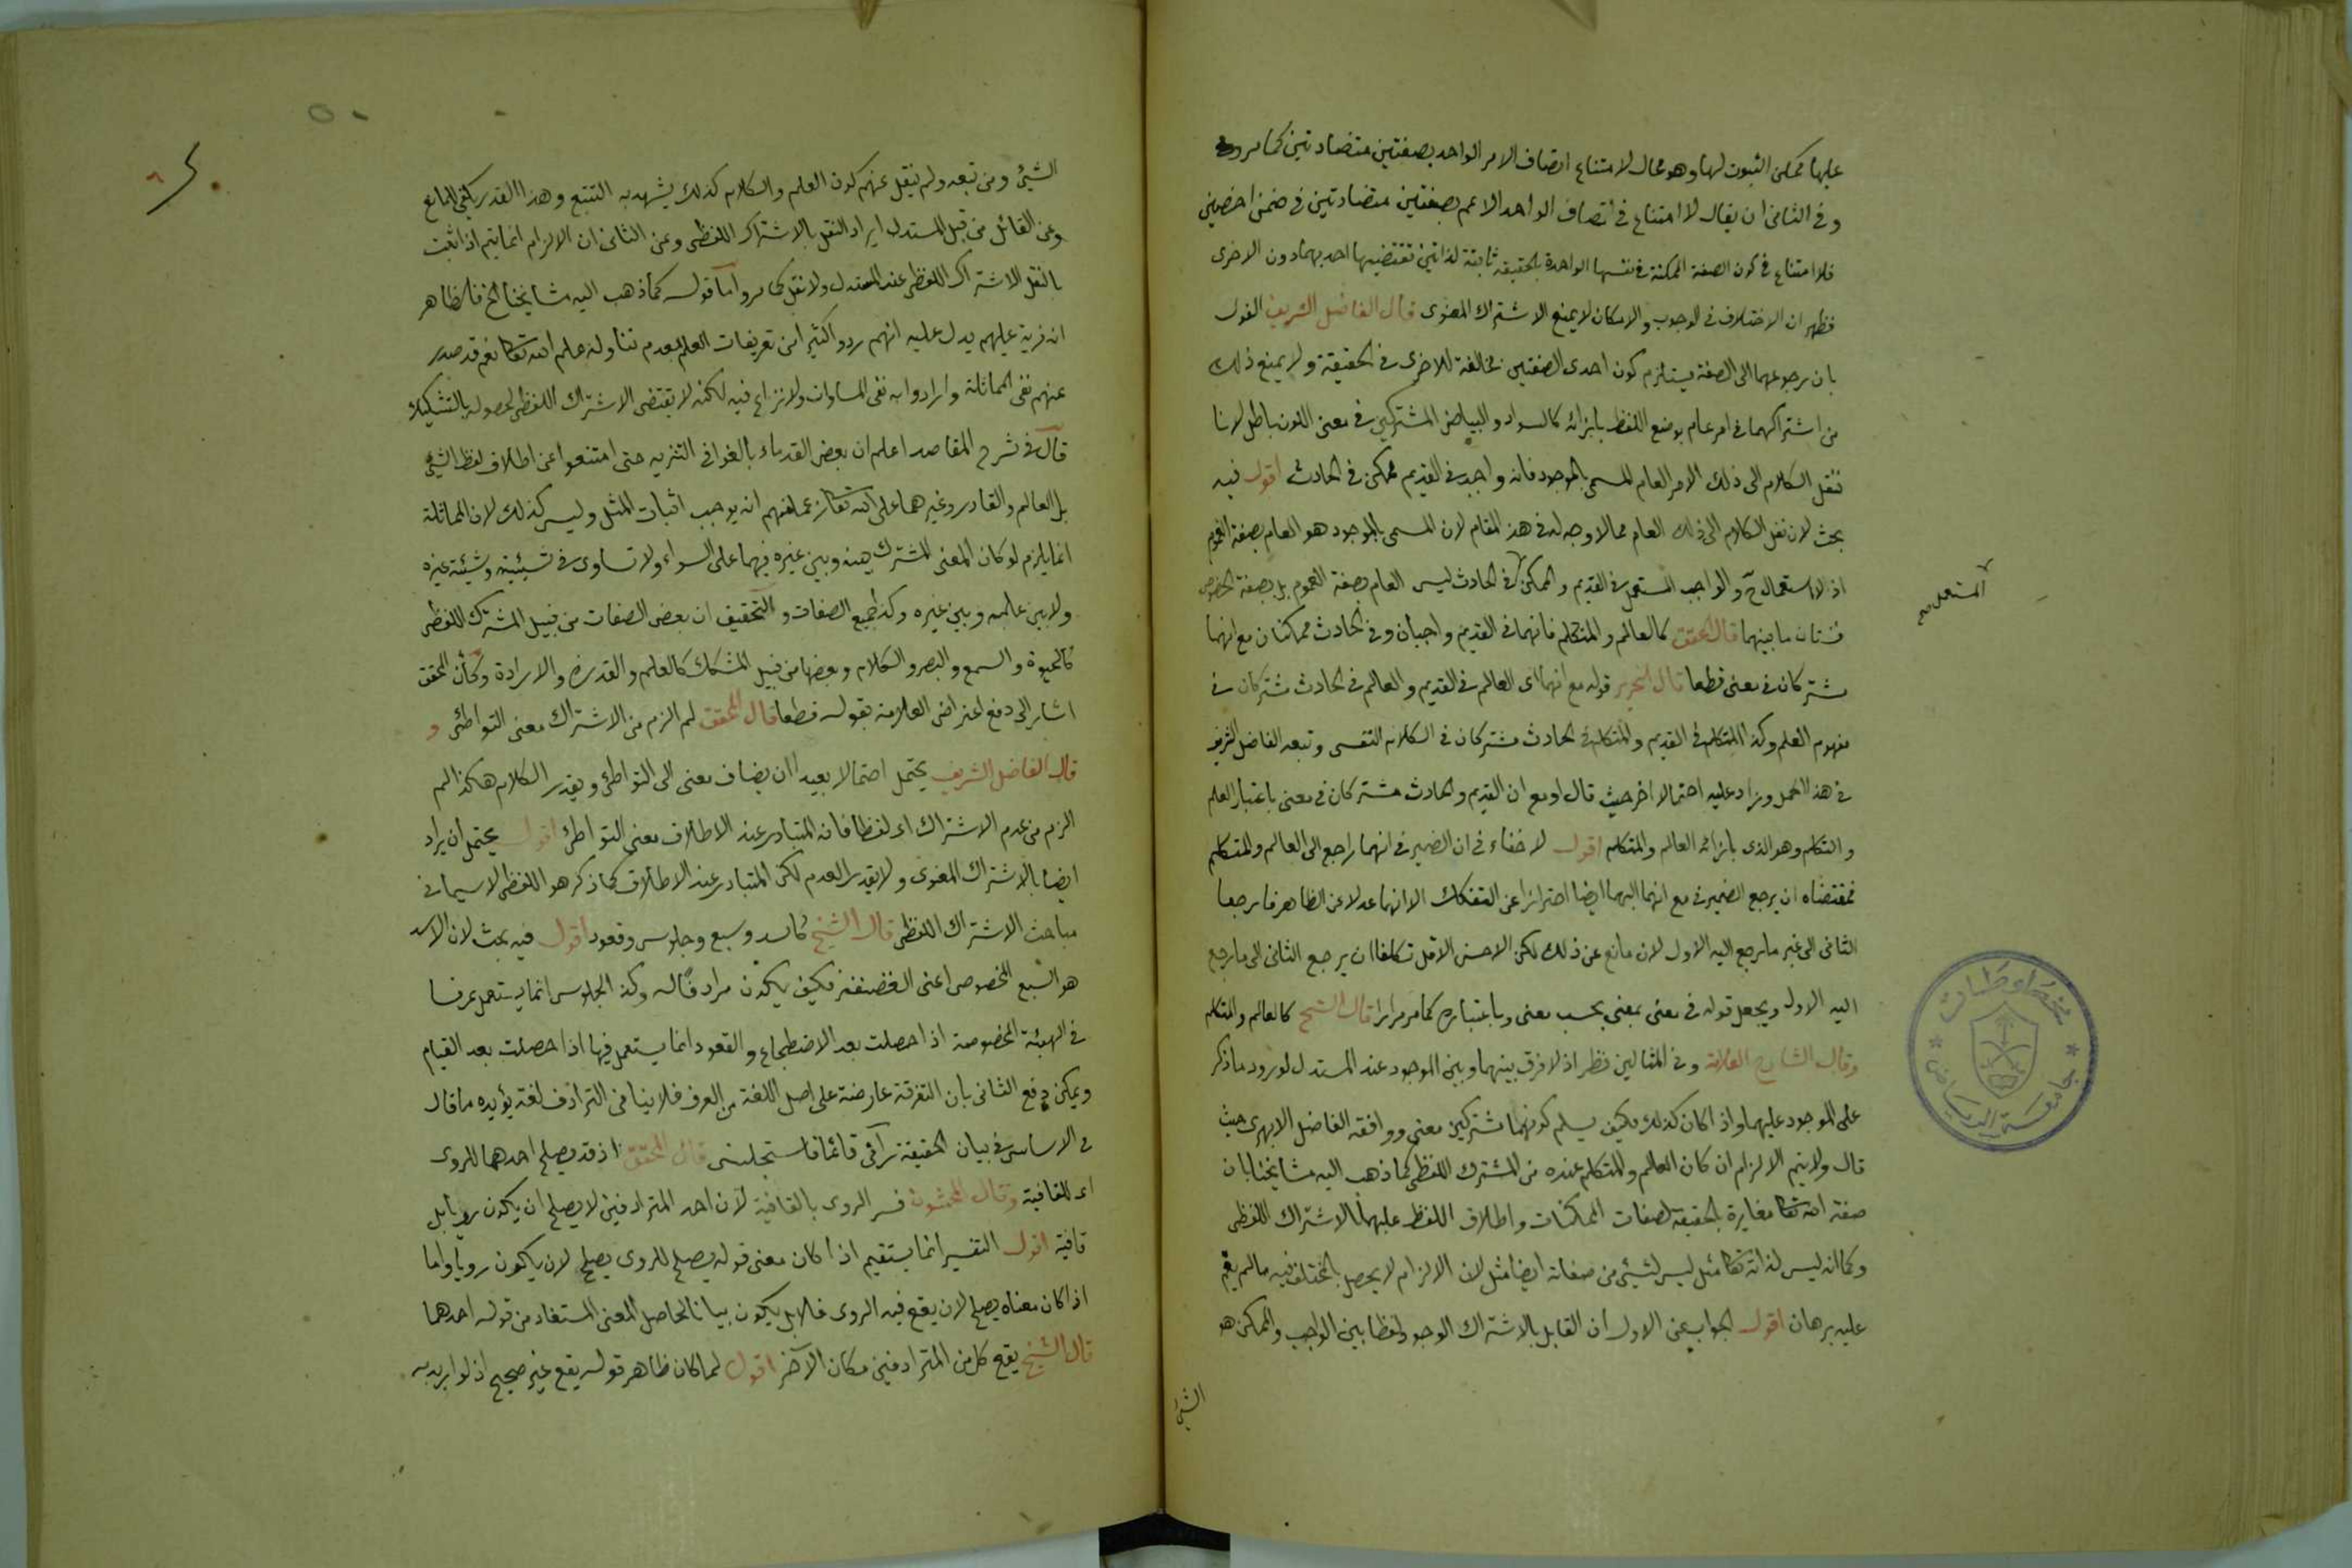 عليها ممكن الثبوت لها وهو محال لامتناع اتصاف الامر الواحد بصفتين متضادتين كما مر
وفى الثانى ان يقال لا امتناع فى اتصاف الواحد الاعم بصفتين متضادتين فى ضمن اخصين
فلا امتناع فى كون الصفة الممكنة فى نفسها الواحدة بالحقيقة ثابتة لذاتين تقتضيها احديهما دون الاخرى
فظهر ان الاختلاف فى الوجوب والامكان لا يمنع الاشتراك المعنوى قال الفاضل الشريف القول
بان رجوعهما الى الصفة يستلزم كون احدى الصفتين مخالفة للاخرى فى الحقيقة ولا يمنع ذلك
من اشتراكهما فى امر عام يوضع اللفظ بازائه كالسواد والبياض المشتركين فى معنى اللون باطل لانا
ننقل الكلام الى ذلك الامر العام المسمى بالموجود فانه واجب فى القديم ممكن فى الحادث اقول فيه
بحث لان نقل الكلام الى ذلك العام مما لا وجه له فى هذ المقام لان المسمى بالموجود هو العام بصفة العموم
اذ لا استعمال ح والواجب المستعمل فى القديم والممكن فى الحادث ليس العام بصفة العموم بل بصفة الخصوص
المستعمل صح
فشتان ما بينهما قال المحقق كالعالم والمتكلم فانهما فى القديم واجبان وفى الحادث ممكنان مع انهما
مشتركان فى معنى قطعا قال التحرير قوله مع انهما اى العالم فى القديم والعالم فى الحادث مشتركان فى
مفهوم العلم وكذا المتكلم فى القديم والمتكلم فى الحادث مشتركان فى الكلام النفسى وتبعه الفاضل الشريف
فى هذ الحمل وزاد عليه احتمالا اخر حيث قال او مع ان القديم والحادث مشتركان فى معنى باعتبار العلم
والتكلم وهو الذى بازائه العالم والمتكلم اقول لا خفاء فى ان الضمير فى انهما راجع الى العالم والمتكلم
فمقتضاه ان يرجع الضمير فى مع انهما اليهما ايضا احترازا عن التفكك الا انهما عدلا عن الظاهر فارجعا
الثانى الى غير ما رجع اليه الاول لان مانع عن ذلك لكن الاحسن الاقل تكلفا ان يرجع الثانى الى ما رجع
اليه الاول ويجعل قوله فى معنى بمعنى بحسب معنى وباعتباره كما مر مرارا قال الشيخ كالعالم والمتكلم
وقال الشارح العلامة وفى المثالين نظر اذ لا فرق بينهما وبين الموجود عند المستدل لورود ما ذكر
على الموجود عليهما واذا كان كذلك فكيف يسلم كونهما مشتركين معنى ووافقه الفاضل الابهرى حيث
قال ولا يتم الالزام ان كان العالم والمتكلم عنده من المشترك اللفظى كما ذهب اليه مشايخنا بان
صفة الله تعا مغايرة بالحقيقة لصفات الممكنات واطلاق اللفظ عليهما بالاشتراك اللفظى
وكما انه ليس لذاته تعا مثل ليس لشيئى من صفاته ايضا مثل لان الالزام لا يحصل بالمختلف فيه مالم يقم
عليه برهان اقول الجواب عن الاول ان القايل بالاشتراك الوجود لفظا بين الواجب والممكن هو
الشيئ
الشيئ ومن تبعه ولم ينقل عنهم كون العلم والكلام كذلك يشهد به التتبع وهذا القدر يكفى للمانع
وعن القائل من قبل المستدل ايراد النقل بالاشتراك اللفظى وعن الثانى ان الالزام انما يتم اذا ثبت
بالنقل الاشتراك اللفظى عند المستدل ولا نقل كما مر واما قوله كما ذهب اليه مشايخنا الخ فالظاهر
انه فرية عليهم يدل عليه انهم ردوا كثيرا من تعريفات العلم بعدم تناوله علم الله تعا نعم قد صدر
عنهم نفى المماثلة وارادوا به نفى المساوات ولا نزاع فيه لكنه لا يقتضى الاشتراك اللفظى لحصوله بالتشكيك
قال فى شرح المقاصد اعلم ان بعض القدماء بالغوا فى التنزيه حتى امتنعوا عن اطلاق لفظ الشيئ
بل العالم والقادر وغيرهما على الله تعا زعما منهم انه يوجب اثبات المثل وليس كذلك لان المماثلة
انما يلزم لو كان المعنى المشترك بينه وبين غيره فيهما على السواء ولا تساوى فى شيئيته وشيئية غيره
ولا بين علمه وبين غيره وكذا جميع الصفات والتحقيق ان بعض الصفات من قبيل المشترك اللفظى
كالحيوة والسمع والبصر والكلام وبعضها من قبيل المشكك كالعلم والقدرة والارادة وكأن المحقق
اشار الى دفع اعتراض العلامة بقوله قطعا قال المحقق لم الزم من الاشتراك معنى التواطئى و
قال الفاضل الشريف يحتمل احتمالا بعيدا ان يضاف معنى الى التواطئ ويقدر الكلام هكذا لم
الزم من عدم الاشتراك اى لفظا فانه المتبادر عند الاطلاق معنى التواطئ اقول يحتمل ان يراد
ايضا بالاشتراك المعنوى ولا يقدر العدم لكن المتبادر عند الاطلاق كما ذكر هو اللفظى لا سيما فى
مباحث الاشتراك اللفظى قال الشيخ كاسد وسبع وجلوس وقعود اقول فيه بحث لان الاسد
هو السبع المخصوص اعنى الغضنفر فكيف يكون مرادفا له وكذ الجلوس انما يستعمل عرفا
فى الهيئة المخصوصة اذا حصلت بعد الاضطجاع والقعود انما يستعمل فيها اذا حصلت بعد القيام
ويمكن دفع الثانى بان التفرقة عارضة على اصل اللغة من العرف فلا ينافى الترادف لغة يؤيده ما قال
فى الاساس فى بيان الحقيقة رآنى قائما فاستجلسنى قال المحقق اذ قد يصلح احدهما للروى
اى للقافية وقال المحشون فسر الروى بالقافية لان احد المترادفين لا يصلح ان يكون رويا بل
قافية اقول التفسير انما يستقيم اذا كان معنى قوله يصلح للروى يصلح لان يكون رويا واما
اذا كان معناه يصلح لان يقع فيه الروى فلا بل يكون بيانا لحاصل المعنى المستفاد من قوله احدهما
قال الشيخ يقع كل من المترادفين مكان الآخر اقول لما كان ظاهر قوله يقع غير صحيح اذ لو اريد به
جامعة الرياض
مخطوطات